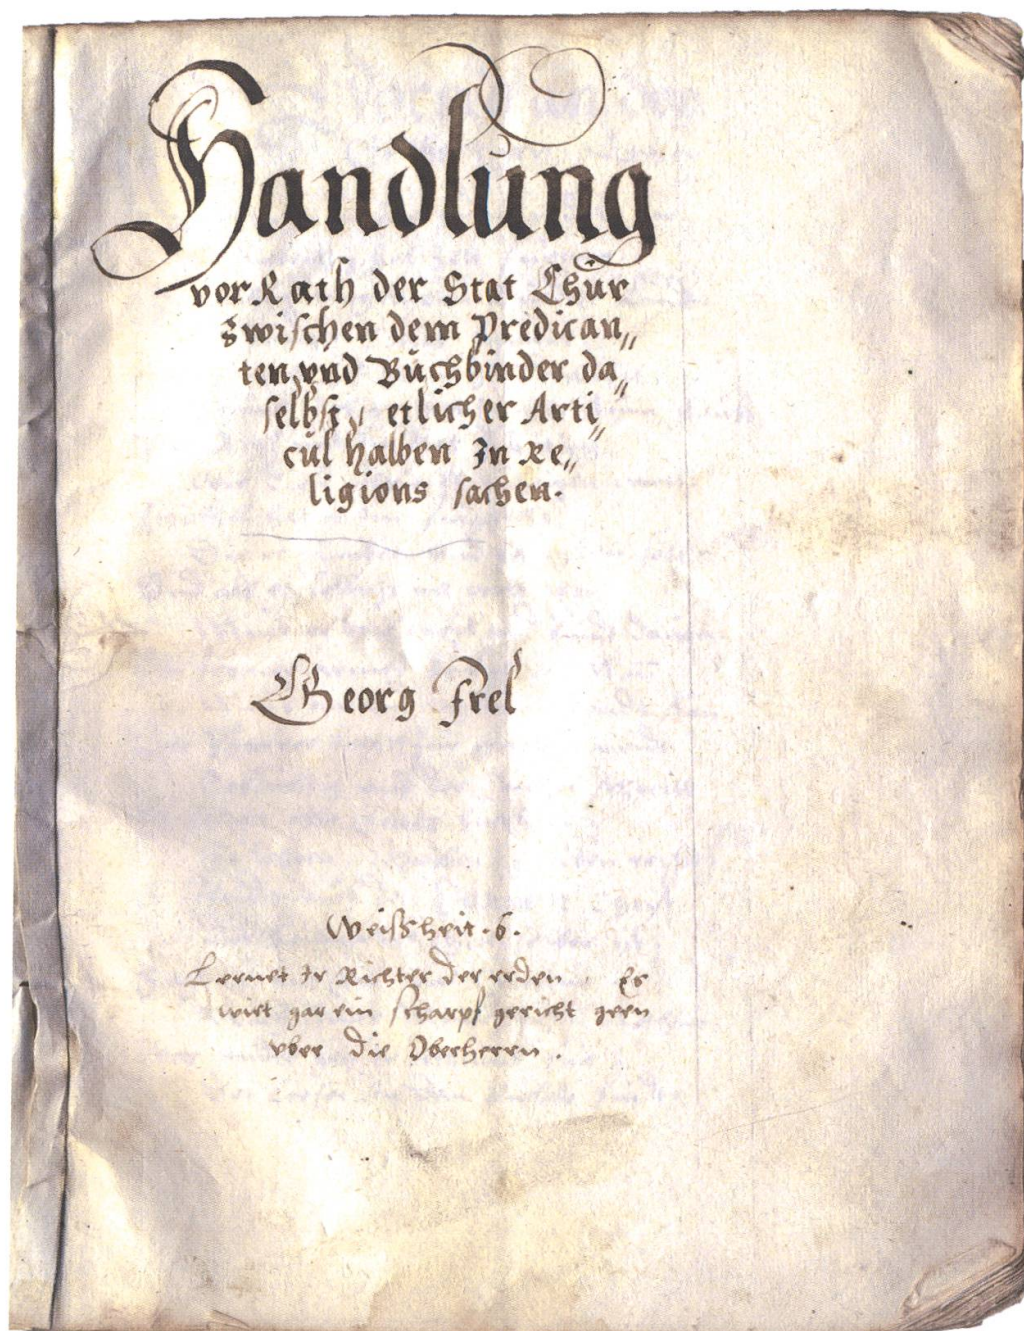 Handlung
vor Rath der Stat Chůr
Zwischen dem Predican„
ten, vnd Bůchbinder da„
selbst, etlicher Arti„
cůl halben In Re„
ligions sachen.
Georg Frel
Weißheit .6.
Lernet Ir Richter der erden, Es
wirt gar ein scharpf gericht geen
vber die Oberherrn.